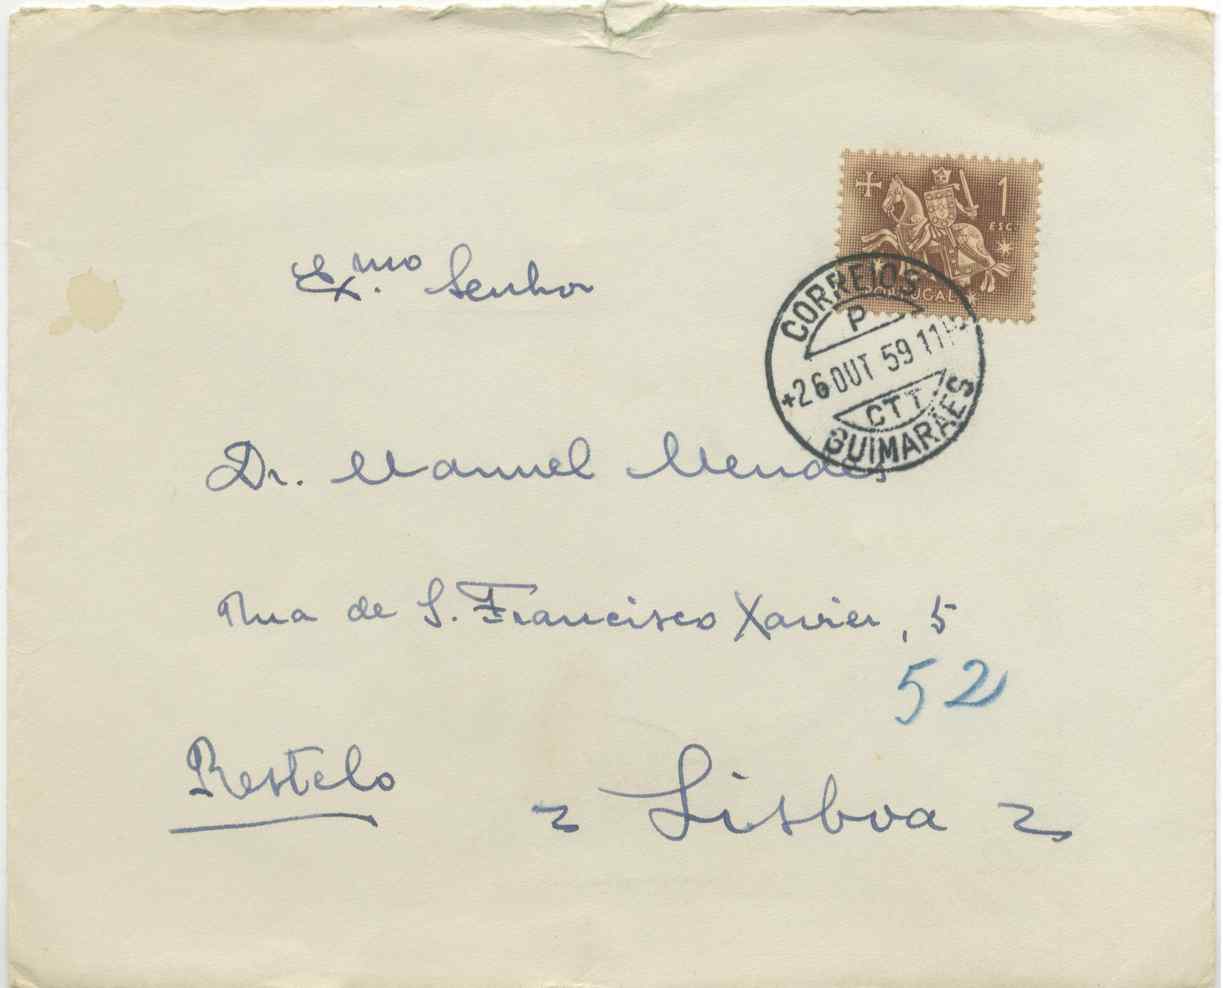 1
ESC.
PORTUGAL
CORREIOS
P
+26 OUT 59 11
CTT
GUIMARÃES
Exmo. Senhor
Dr. Manuel Mendes
Rua de S. Francisco Xavier, 5
52
Restelo
Lisboa